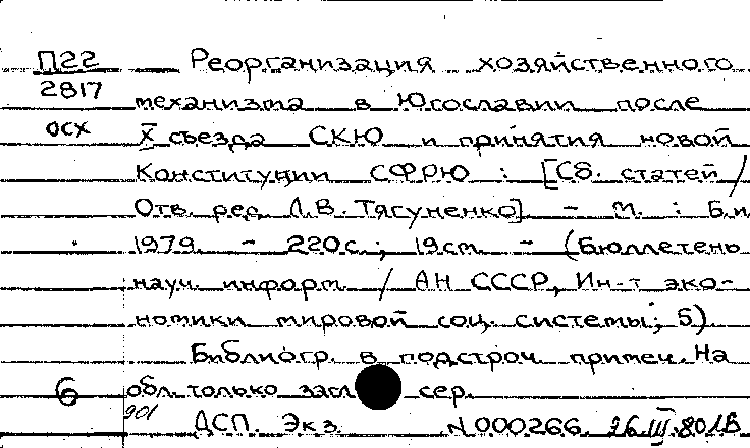 П22 Реорганизация хозяйственного
2817 механизма в Югославии после
осх X съезда СКЮ и принятия новой
Конституции СФРЮ : [Сб. статей /
Отв. ред. Л.В. Тягуненко]. - М. : Б.и
1979. - 220с.; 19см. - (Бюллетень
науч. информ. / АН СССР, Ин-т эко-
номики мировой соц. системы; 5).
Библиогр. в подстроч. примеч. На
6 обл. только загл. сер.
901 ДСП. Экз. N000266. 26.III.80